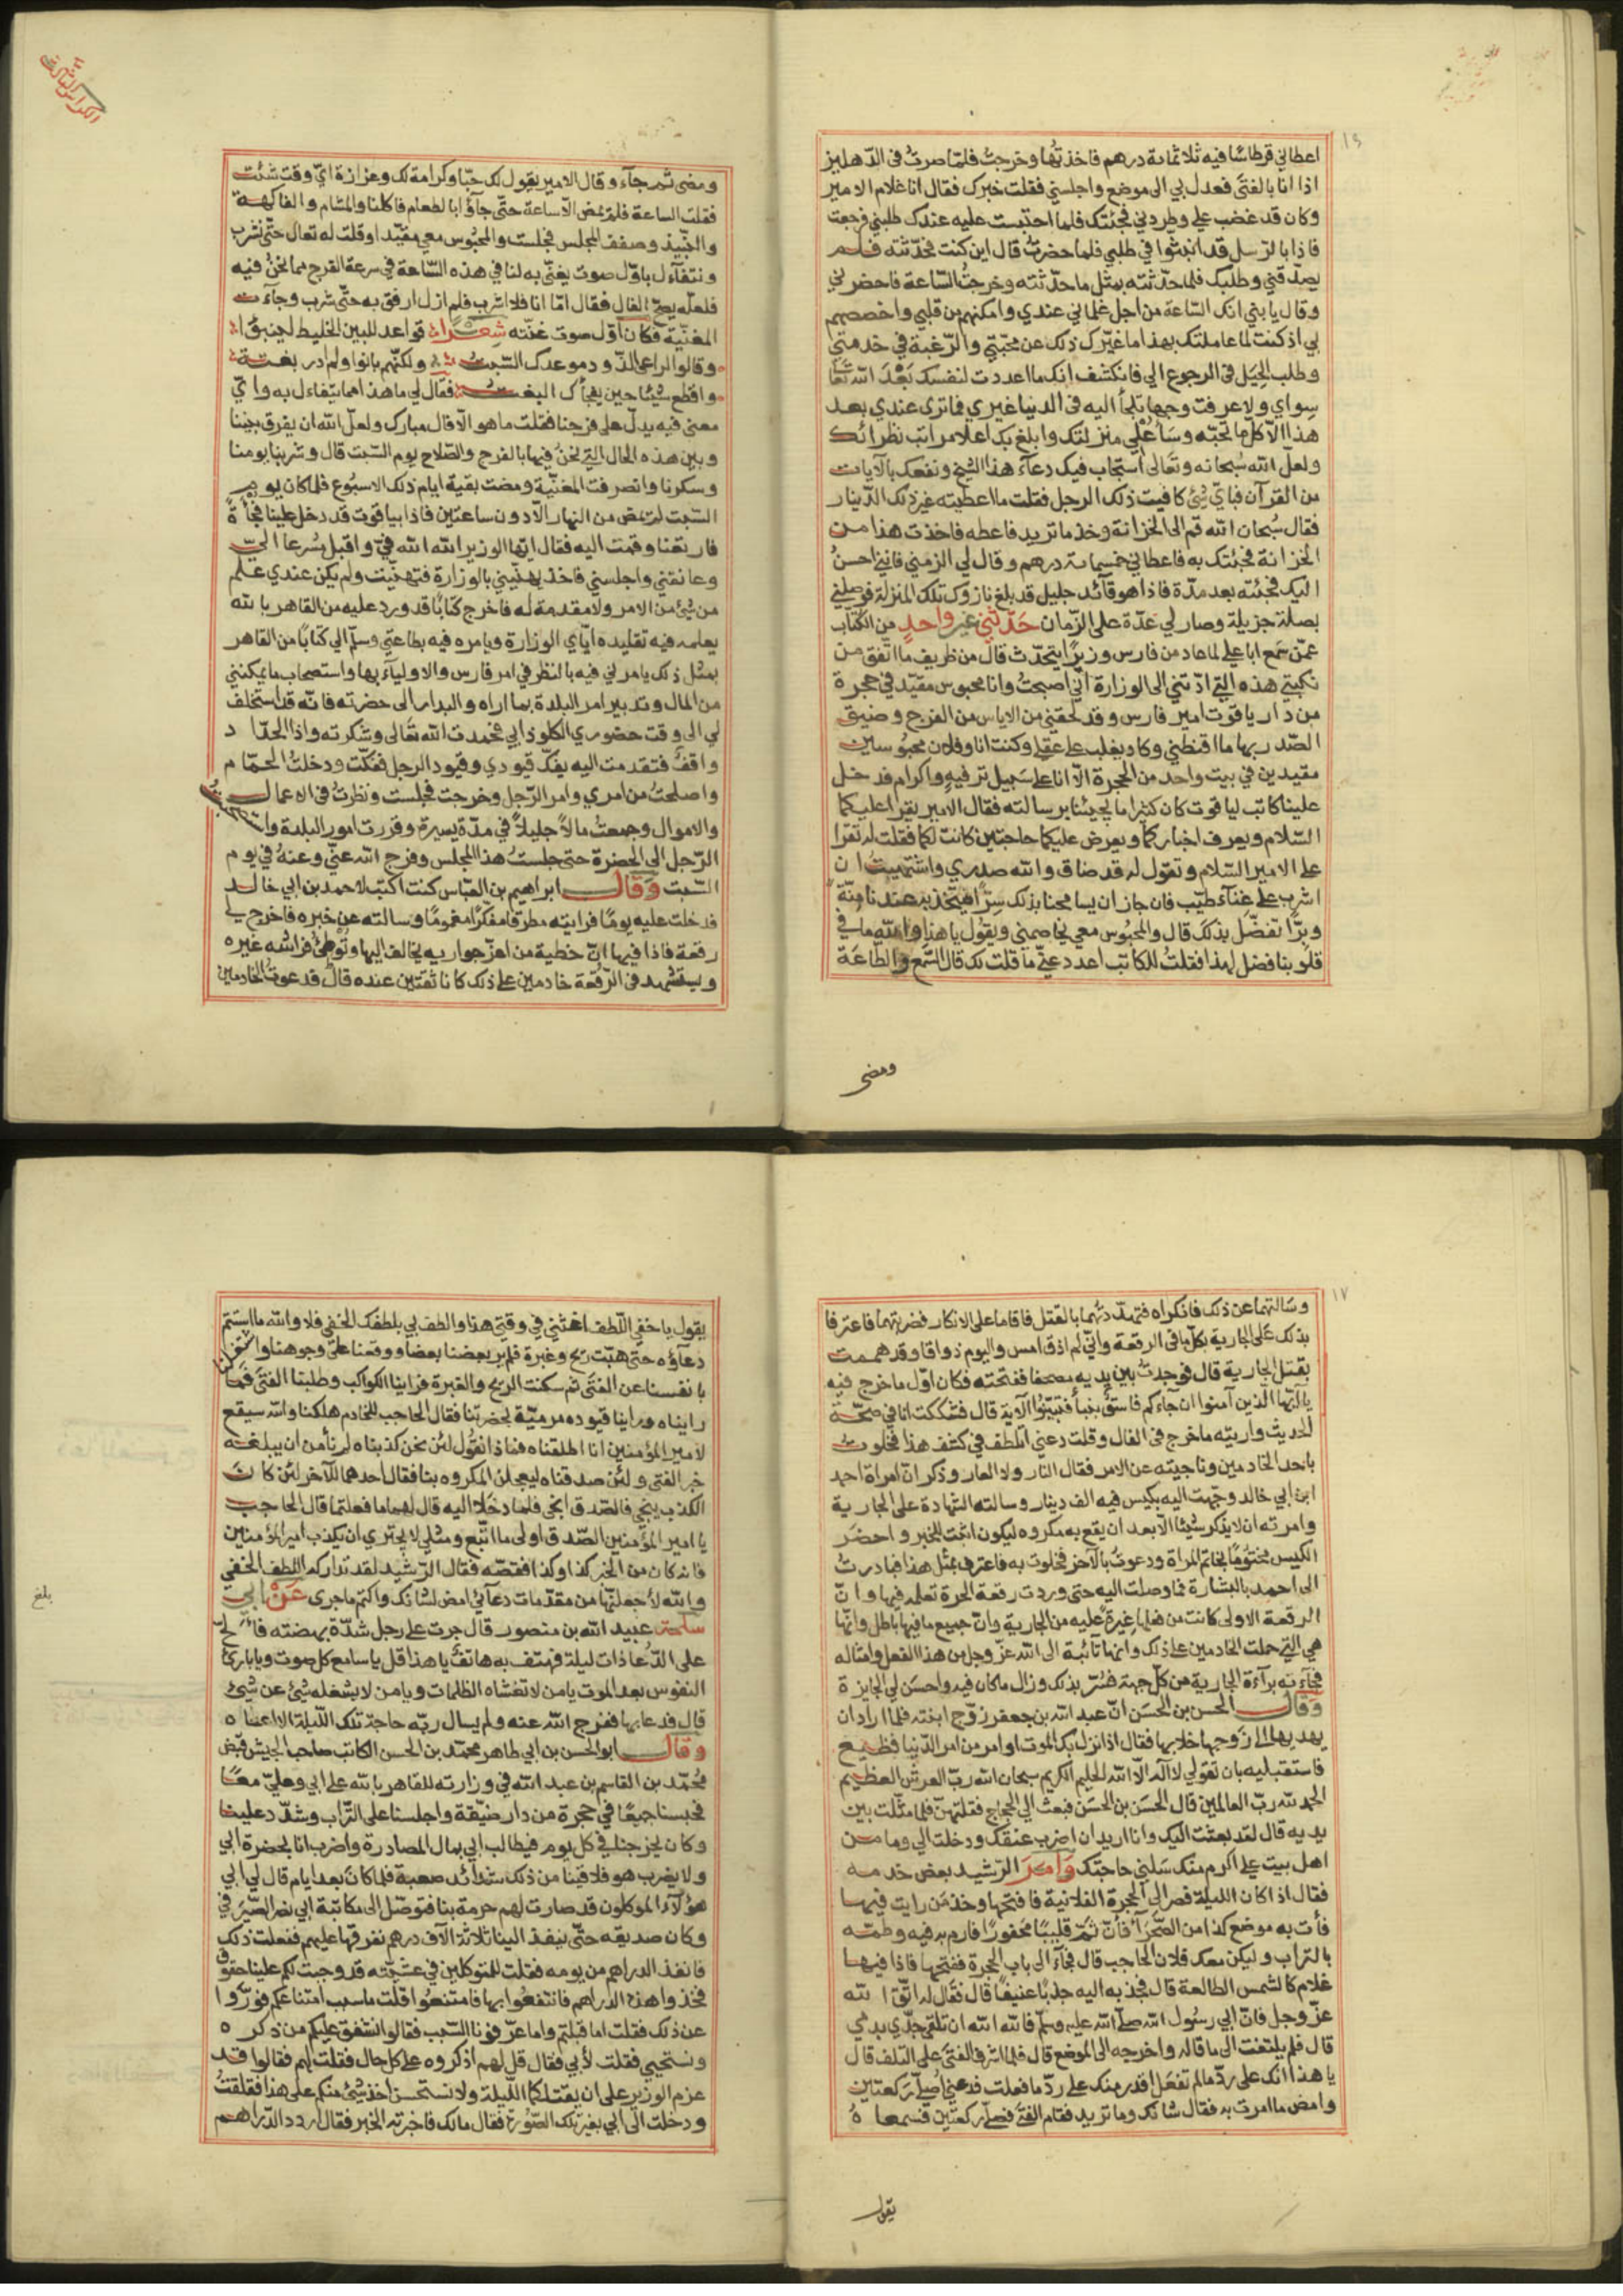 ١٦
اعطاني قرطاسًا فيه ثلاثمائة درهم فاخذتُها وخرجتُ فلمّا صرتُ فى الدّهليز
اذا انا بالفتى فعدل بي الى موضع واجلسني فقلت خبرك فقال انا غلام الامير
وكان قد غضب علي وطردني فجئتك فلما احتبست عليه عندك طلبني فرجعت
فاذا بالرّسل قد انبثوا في طلبي فلما حضرتُ قال اين كنت فحدّثته فلم
يصدّقني وطلبك فلما حدّثته بمثل ما حدّثته وخرجتُ السّاعة فاحضرني
وقال يا بني انك السّاعة من اجل غلماني عندي وامكنهم من قلبي واخصهم
بي اذ كنت لما عاملتك بهذا ما غيّرك ذلك عن محبّتي والرّغبة في خدمتي
وطلب الحِيَل فى الرجوع الي فانكشف انك ما اعددت لنفسك بَعْدَ الله تعالى
سِواي ولا عرفت وجها تلجأ اليه فى الدنيا غيري فما ترى عندي بعد
هذا الّا كل ما تحبّه وسَأُعْلي منزلتك وابلغ بك اعلا مراتب نظرائك
ولعلّ الله سُبحانه وتعالى استجاب فيك دعآء هذا الشيخ ونفعك بالآيات
من القرآن فبايّ شئ كافيت ذلك الرجل فقلت ما اعطيته غير ذلك الدّينار
فقال سُبحان الله قم الى الخزانة وخذ ما تريد فاعطه فاخذت هذا من
الخزانة فجئتك به فاعطاني خمسمائة درهم وقال لي الزمني فاني احسنُ
اليك فجئته بعد مدّة فاذا هو قآئد جليل قد بلغ نازوك تلك المنزلة فوصلني
بصلة جزيلة وصار لي عدّة على الزّمان حَدّثني غير واحدٍ من الكُتّاب
عمّن سَمع ابا علي لما عاد من فارس وزيرًا يتحدّث قال من ظريف ما اتّفق من
نكبتي هذه التي ادّتني الى الوزارة انّي اصبحتُ وانا محبوس مقيّد في حجرة
من دار ياقوت امير فارس وقد لحقني من الاياس من الفرج وضيق
الصّدر بها ما اقنطني وكاد يغلب على عقلي وكنت انا وفلان محبوُسين
مقيدين في بيت واحد من الحجرة الّا انا على سَبيل ترفيهٍ واكرام فدخل
علينا كاتب لياقوت كان كثيرا ما يجيئنا برسالته فقال الامير يقرا عليكما
السّلام ويعرف اخباركما ويعرض عليكما حاجتين كانت لكما فقلت له تقرا
على الامير السّلام وتقول له قد ضاق والله صدري واشتهيتُ ان
اشرب على غنآء طيّب فان جاز ان يسامحنا بذلك سِرًّا ويتّخذ به عندنا مِنّةً
وبرًّا تفضّل بذلك قال والمحبُوس معي يخاصمني ويقول يا هذا والله ما في
قلوبنا فضل لهذا فقلتُ للكاتب اعدد عنّي ما قلت لك قال السّمع والطاعَة
ومضى
ومضى ثم جآء وقال الامير يقول لك حبّا وكرامة لك وعزازة ايّ وقت شئت
فقلت الساعة فلم تمض الّا ساعة حتّى جاؤا بالطعام فاكلنا والمشام والفاكهة
والنّبيذ وصفف المجلس فجلست والمحبُوس معي مقيّد اوقلت له تعال حتّى نشرب
ونتفآءل باوّل صوت يغنّى به لنا في هذه السّاعة في سرعة الفرج مما نحن فيه
فلعلّه يصحّ الفال فقال امّا انا فلا اشرب فلم ازل ارفق به حتّى شرب وجآءت
المغنّية فكان اوّل صوت غنّته شِعْرًا قواعد للبين الخليط لينبتوا
وقالوا الراعي الذّود موعدك السّبت ولكنّهم بانوا ولم ادر بغتة
واقطع شيئا حين يفجأك البغت فقال لي ما هذا مما يتفاءل به وايّ
معنى فيه يدلّ على فرجنا فقلت ما هو الّا فال مبارك ولعلّ الله ان يفرق بيننا
وبين هذه الحال التي نحنُ فيها بالفرج والصّلاح يوم السّبت قال وشربنا يومنا
وسكرنا وانصرفت المغنّية ومضت بقية ايام ذلك الاسبُوع فلما كان يوم
السّبت لم تمض من النهار الّا دون ساعتين فاذا بياقوت قد دخل علينا فجأةً
فارتعنا وقمت اليه فقال ايّها الوزير الله الله فيّ واقبل مُسرعا اليّ
وعانقني واجلسني فاخذ يهنّيني بالوزارة فتهنيّت ولم يكن عندي علم
من شئ من الامر ولا مقدمة له فاخرج كتابًا قد ورد عليه من القاهر بالله
يعلمه فيه تقليده ايّاي الوزارة ويامره فيه بطاعتي وسلّم الي كتابًا من القاهر
بمثل ذلك يامرني فيه بالنظر في امر فارس والاوليآء بها واستصحاب ما يمكنني
من المال وتدبير امر البلدة بما اراه والبدار الى حضرته فانّه قد استخلف
لي الى وقت حضوري الكلوذاني فحمدت الله تعالى وشكرته واذا الحدّاد
واقفٌ فتقدمت اليه يفكّ قيودي وقيود الرجل ففكّت ودخلتُ الحمّام
واصلحتُ من امري وامر الرّجل وخرجت فجلست ونظرتُ فى الاعمال
والاموال وجمعتُ مالًا جليلًا في مدّة يسيرة وقررت امور البلدة
الرّجل الى الحضرة حتى جلستُ هذا المجلس وفرج الله عنّي وعنهُ في يوم
السّبت وَقال ابراهيم بن العبّاس كنت اكتب لاحمد بن ابي خالد
فدخلت عليه يومًا فرايته مطرقا مفكّرًا مغمومًا وسالته عن خبره فاخرج لي
رقعة فاذا فيها انّ حظية من اعزّ جواريه يخالف اليها وتُوطئ فراشه غيره
ويستشهد فى الرّقعة خادمين على ذلك كانا ثقتين عنده قال قد عوت الخادمين
١٧
وسالتهما عن ذلك فانكراه فتهدّدتُهما بالقتل فاقاما على الانكار فضربتهما فاعترفا
بذلك عَلى الجارية بكلّ ما في الرقعة وانّي لم اذق امس واليوم ذواقا وقد هممت
بقتل الجارية قال فوجدتُ بين يديه مصحفا ففتحته فكان اوّل ما خرج فيه
يا ايّها الذين آمنوا ان جآءكم فاسقٌ بنبأ فتبيّنوا الآية قال فشككت انا في صحّة
الحديث واريته ما خرج فى الفال وقلت دعني اتلطف في كشف هذا فخلوتُ
باحد الخادمين وناجيته عن الامر فقال النار ولا العار وذكر انّ امراة احمد
ابن ابي خالد وجّهت اليه بكيس فيه الف دينار وسالته الشهادة على الجارية
وامرته ان لا يذكر شيئا الّا بعد ان يقع به مكروه ليكون اثبت للخبر واحضَر
الكيس مختُومًا بخاتم المراة ودعوتُ بالآخر فخلوت به فاعترف بمثل هذا فبادرتُ
الى احمد بالبشارة فما وصلت اليه حتى وردت رقعة الحرة تعلمه فيها وانّ
الرقعة الاولى كانت من فعلها غيرةً عليه من الجارية وانّ جميع ما فيها باطل وانّها
هي التي حملت الخادمين على ذلك وانّها تآئبة الى الله عزّ وجل من هذا الفعل وامثاله
فجآءته برآءة الجارية من كلّ جهة فسُرّ بذلك وزال ما كان فيه واحسن لي الجايزة
وقال الحسن بن الحسَن انّ عبد الله بن جعفر زوّج ابنته فلما اراد ان
يهديها الى زوجها خلا بها فقال اذا نزل بك الموت او امر من امر الدّنيا فظيع
فاستقبليه بان تقولي لا اله الّا الله الحليم الكريم سبحان الله ربّ العرش العظيم
الحمد لله ربّ العالمين قال الحسَن بن الحسَن فبعث الي الحجاج فقلتهنّ فلما مثّلت بين
يديه قال لقد بعثت اليك وانا اريد ان اضرب عنقك ودخلت الي وما من
اهل بيت علي اكرم منك سَلني حاجتك وَامرَ الرّشيد بعض خدمه
فقال اذا كان الليلة فصر الى الحجرة الفلانية فافتحها وخذ مَن رايت فيها
فأت به موضع كذا من الصّحَرآء فانّ ثَمّ قليبًا محفورًا فارم به فيه وطمّه
بالتراب وليكن معك فلان الحاجب قال فجآء الى باب الحجرة ففتحها فاذا فيها
غلام كالشمس الطالعة قال فجذبه اليه جذبًا عنيفًا قال فقال له اتّق الله
عزّ وجل فانّ ابي رسُول الله صلى الله عليه وسلّم فالله الله ان تلقى جدّي بدمي
قال فلم يلتفت الى ما قاله واخرجه الى الموضع قال فلما اشرف الفتى على التلف قال
يا هذا انك على ردّ ما لم تفعل اقدر منك على ردّ ما فعلت فدعني اُصلّي ركعتين
وامض ما امرت به فقال شانك وما تريد فقام الفتى فصلّى ركعتين فسمعاهُ
يقول
يقول يا خفيّ اللّطف اغثني في وقتي هذا والطف بي بلطفك الخفي فلا والله ما استتم
دعآؤه حتى هبّت ريح وغبرة فلم ير بعضنا بعضا ووقعنا على وجوهنا واشتغلنا
بانفسنا عن الفتى ثم سكنت الريح والغبرة فراينا الكواكب وطلبنا الفتى فما
رايناه وراينا قيوده مرميّة بحضرتنا فقال الحاجب للخادم هلكنا والله سيقع
لامير المؤمنين انا اطلقناه فماذا نقول لئن نحن كذبناه لم نأمن ان يبلغه
خبر الفتى ولئن صدقناه ليعجلن المكروه بنا فقال احدهما للآخر لئن كان
الكذب ينجي فالصّدق انجى فلما دخَلا اليه قال لهما ما فعلتما قال الحاجب
يا امير المؤمنين الصّدق اولى ما اتّبع ومثلي لا يجتري ان يكذب امير المؤمنين
فانه كان من الخبر كذا وكذا فقصّه فقال الرّشيد لقد تداركه اللطف الخفي
والله لأجعلنّها من مقدّمات دعآئي امض لشانك واكتم ما جرى عَنْ ابي
سلمة عبيد الله بن منصور قال جرت على رجل شدّة بهضته فالحّ
على الدّعا ذات ليلة فهتف به هاتفٌ يا هذا قل يا سامع كل صوت ويا بارئ
النفوس بعد الموت يا من لا تغشاه الظلمات ويا من لا يشغله شئ عن شئ
قال فدعا بها ففرج الله عنه ولم يسال ربّه حاجة تلك اللّيلة الا اعطاه
وقال ابو الحسن بن ابي طاهر محمّد بن الحسن الكاتب صاحب الجيش قبض
مُحمّد بن القاسم بن عبد الله في وزارته للقاهر بالله على ابي وعليّ معًا
فحبسنا جميعًا في حجرة من دار ضيّقة واجلسنا على التّراب وشدّد علينا
وكان يخرجنا في كل يوم فيطالب ابي بمال المصادرة واضرب انا بحضرة ابي
ولا يضرب هو فلاقينا من ذلك شدآئد صعبة فلما كان بعد ايام قال لي ابي
هؤلآء الموكلون قد صارت لهم حرمة بنا فتوصّل الى مكاتبة ابي
وكان صديقه حتّى ينفذ الينا ثلاثة الآف درهم نفرقها عليهم ففعلت ذلك
فانفذ الدراهم من يومه فقلت للمتوكلين في عشيّته قد وجبت لكم علينا حقوق
فخذوا هذه الدراهم فانتفعُوا بها فامتنعُوا فقلت ما سبب امتناعكم فورّوا
عن ذلك فقلت اما قبلتم واما عرّفونا السّبب فقالوا نشفق عليكم من ذكره
ونستحيي فقلت لأبي فقال قل لهم اذكروه على كل حال فقلت لهم فقالوا قد
عزم الوزير على ان يقتلكما اللّيلة ولا نستحسن اخذ شئ منكم على هذا فقلقتُ
ودخلت الى ابي بغير تلك الصّورة فقال مالك فاخبرته الخبر فقال اردد الدّراهم
بلغ